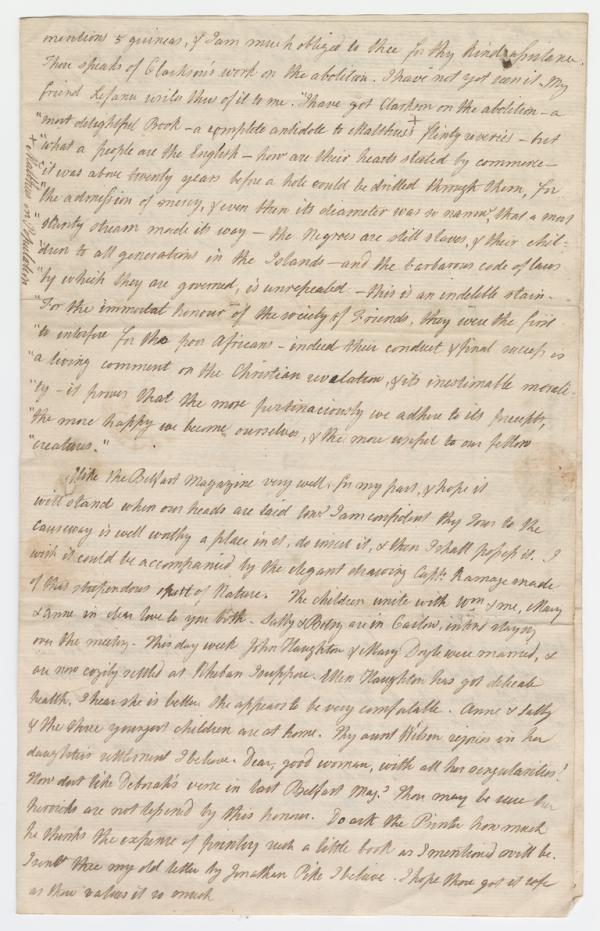 mentions 5 guineas, & I am much obliged to thee for thy kind assistance.
Thou speaks of Clarkson's work on the abolition. I have not yet seen it. My
friend Lefanu writes thus of it to me. "I have got Clarkson on the abolition - a
"most delightful Book - a complete antidote to Malthus's + flinty reveries - but
"what a people are the English - how are their hearts steeled by commerce -
"it was above twenty years before a hole could be drilled through them, for
"the admission of mercy, & even then its diameter was so narrow, that a most
"scanty stream made its way - the Negroes are still slaves, & their chil-
"dren to all generations in the Islands - and the barbarous code of laws
"by which they are governed, is unrepealed - this is an indelible stain -
"For the immortal honour of the society of Friends, they were the first
"to interfere for the poor Africans - indeed their conduct & final success is
"a living comment on the Christian revelation, & its inestimable morali-
"ty - it proves that the more pertinaciously we adhere to its precepts,
"the more happy we become ourselves, & the more useful to our fellow
"creatures."
+ Malthus on Population
I like the Belfast Magazine very well, for my part, & hope it
will stand when our heads are laid low. I am confident thy Tour to the
Causeway is well worthy a place in it, do insert it, & then I shall possess it. I
wish it could be accompanied by the elegant drawing Capt. Ramage made
of this stupendous work of Nature. The children unite with Wm & me, Mary
& Anne in dear love to you both. Sally & Betsy are in Carlow, intend staying
over the meeting. This day week John Haughton & Mary Doyle were married, &
are now cozily settled at Rheban I suppose. Ellen Haughton has got delicate
health, I hear she is better. She appears to be very comfortable. Anne & Sally
& the three youngest children are at home. My aunt Wilson rejoices in her
daughter's settlement I believe. Dear, good woman, with all her singularities!
How dost like Deborah's verse in last Belfast Mag? Thou may be sure her
heroicks are not lessend by this honour. Do ask the Printer how much
he thinks the expense of printing such a little book as I mentioned will be.
I sent thee my old letter by Jonathan Pike I believe. I hope thou got it safe
as thou values it so much